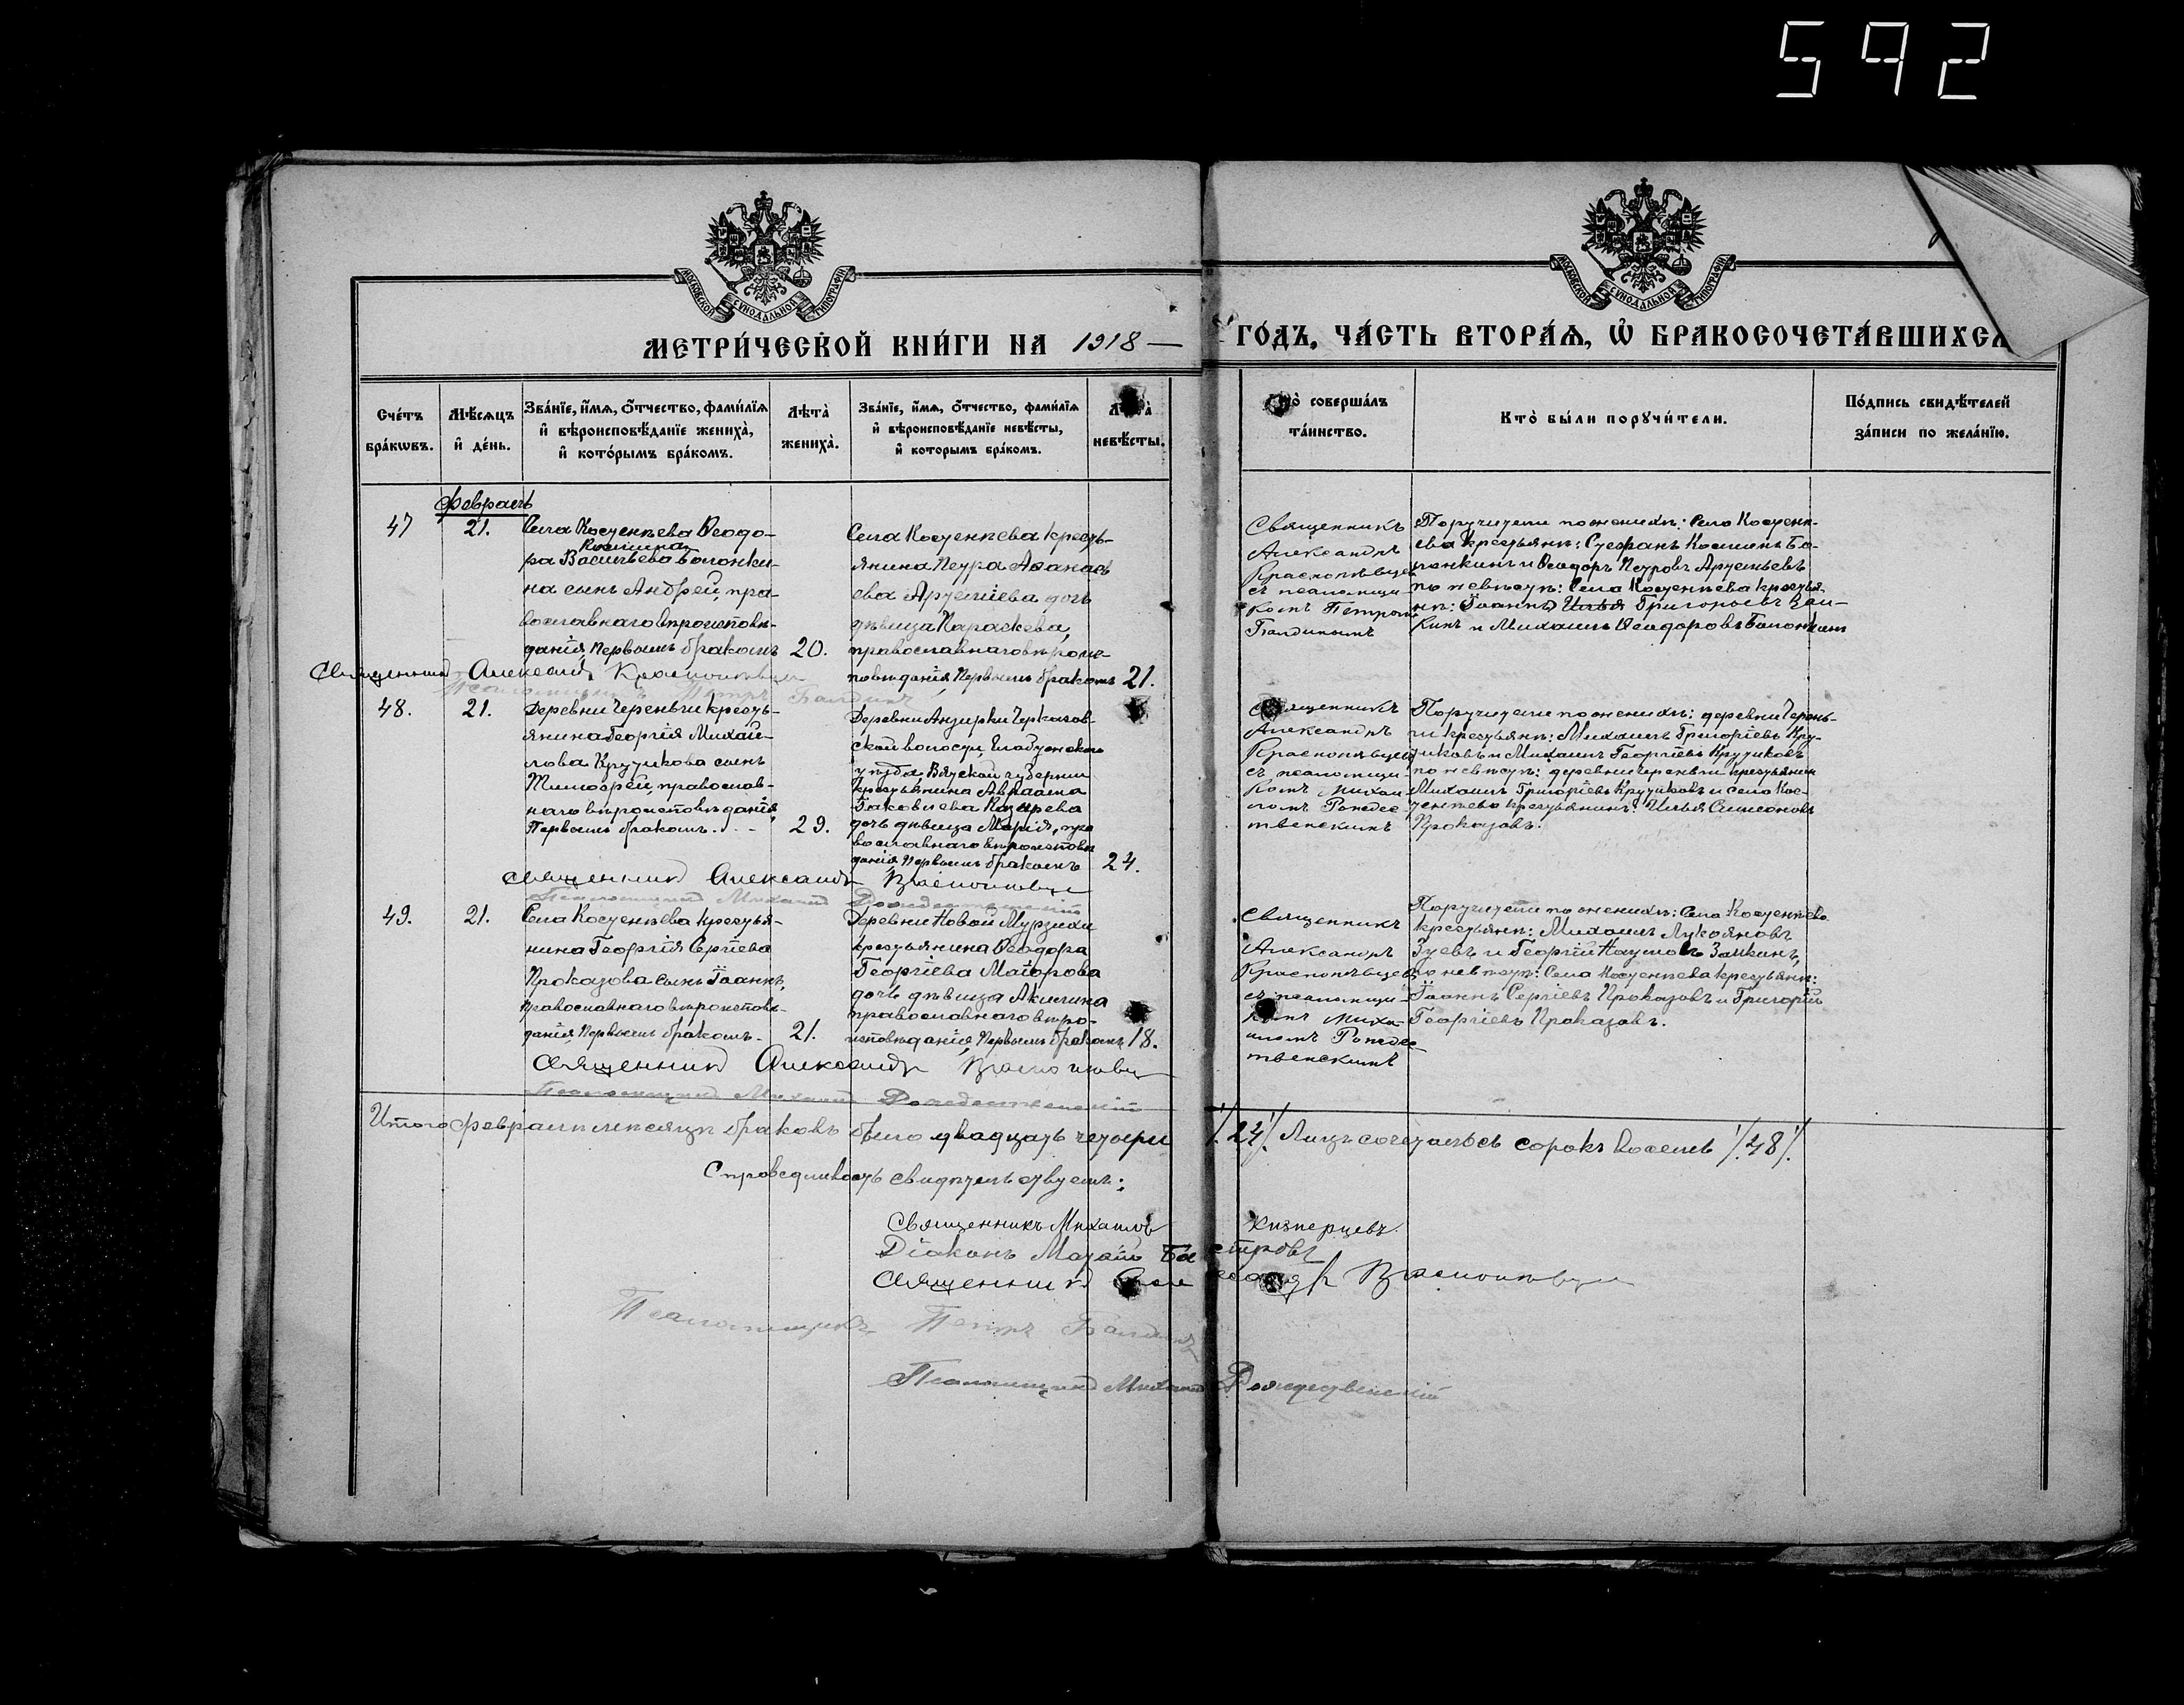 592
МОСКОВСКОЙ СѴНОДАЛЬНОЙ ТИПОГРАФІИ
МОСКОВСКОЙ СѴНОДАЛЬНОЙ ТИПОГРАФІИ
МЕТРИ́ЧЕСКОЙ КНИ́ГИ НА 1918 — ГО́ДЪ, ЧА́СТЬ ВТОРА́Ѧ, Ѡ҆ БРАКОСОЧЕТА́ВШИХСѦ
Сче́тъ бра́кѡвъ.
Мѣ́сѧцъ и҆ де́нь.
Зва́нїе, и҆́мѧ, ѻ҆́тчество, фами́лїѧ
и҆ вѣроисповѣ́данїе жениха̀,
и҆ кото́рымъ бра́комъ.
Лѣта̀ жениха̀.
Зва́нїе, и҆́мѧ, ѻ҆́тчество, фами́лїѧ
и҆ вѣроисповѣ́данїе невѣ́сты,
и҆ которымъ бра́комъ.
невѣ́сты.
соверша́лъ
та́инство.
Кто̀ бы́ли порꙋчи́тели.
По́дпись свидѣ́телей
за́писи по жела́нїю.
Февраль
47
21.
Села Костенѣева Ѳеодо-
ра Васильева Болонки-
на сынъ Андрей, пра-
вославнаго вѣроисповѣ-
данія, Первымъ бракомъ
20.
Села Костенѣева кресть-
янина Петра Аѳанась
ева дочь
дѣвица Параскева,
православнаго вѣроис-
повѣданія, Первымъ бракомъ
21.
Священникъ
Александръ
Краснопѣвцевъ
съ псаломщи-
комъ Петромъ
Балдинымъ
Поручители по женихѣ: Села Костенѣ-
ева крестьяне: Стефанъ Косминъ Бо-
лонкинъ и Ѳеодоръ Петровъ
по невѣстѣ: Села Костенѣева крестья-
не: Іоаннъ Григорьевъ
и Михаилъ Ѳеодоровъ Болонкинъ
Священникъ Александръ Краснопѣвцевъ
Псаломщикъ Петръ Балдинъ
48.
21.
Деревни Череньги кресть-
янина Георгія Михай-
лова Крутикова сынъ
Тимоѳей, православ-
наго вѣроисповѣданія,
Первымъ бракомъ.
29.
Деревни Анзирки Черкасов-
ской волости Елабужскаго
уѣзда, Вятской губерніи
крестьянина Авраама
Іаковлева Козырева
дочь дѣвица Марія, пра
вославнаго вѣроисповѣ
данія, Первымъ бракомъ
24.
Священникъ
Александръ
Краснопѣвцевъ
съ псаломщи-
комъ Михаи
ломъ Рождес
твенскимъ
Поручители по женихѣ: деревни Черень-
ги крестьяне: Михаилъ Григоріевъ Кру-
тиковъ и Михаилъ Георгіевъ Крутиковъ
по невѣстѣ: деревни Череньги крестьянинъ
Михаилъ Григоріевъ Крутиковъ и села Кос-
тенѣева крестьянинъ: Илья Симеоновъ
Проказовъ.
Священникъ Александръ Краснопѣвцевъ
Псаломщикъ Михаилъ Рождественскій
49.
21.
Села Костенѣева крестья-
нина Георгія Сергіева
Проказова сынъ Іоаннъ,
православнаго вѣроисповѣ-
данія, Первымъ бракомъ.
21.
Деревни Новой Мурзихи
крестьянина Ѳеодора
Георгіева Маіорова
дочь дѣвица Акилина
православнаго вѣро-
исповѣданія, Первымъ бракомъ
18.
Священникъ
Александръ
Краснопѣвцевъ
съ псаломщи-
комъ Миха-
иломъ Рождес
твенскимъ
Поручители по женихѣ: Села Костенѣева
крестьяне: Михаилъ Лукояновъ
Зуевъ и Георгій Наумовъ Заикинъ,
по невѣстѣ: Села Костенѣева крестьяне:
Іоаннъ Сергіевъ Проказовъ и Григорій
Георгіевъ Проказовъ.
Священникъ Александръ Краснопѣвцевъ
Псаломщикъ Михаилъ Рождественскій
Итого Февралѣ мѣсяцѣ браковъ было двадцать четыре /24/. Лицъ сочеталось сорокъ восемь /48/.
Справедливость свидѣтельствуемъ:
Священникъ Михаилъ
Діаконъ
Священникъ Александръ Краснопѣвцевъ
Псаломщикъ Петръ Балдинъ
Псаломщикъ Михаилъ Рождественскій